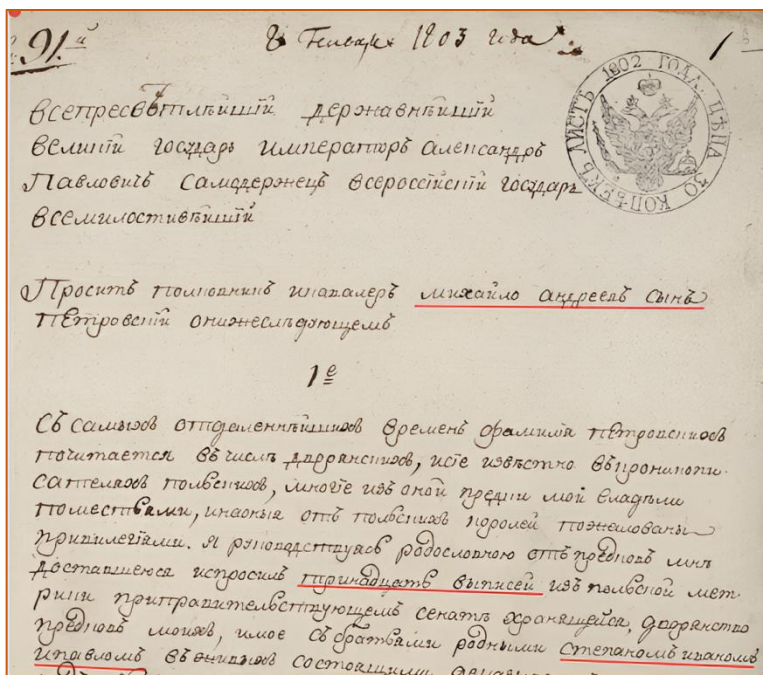 91.й
8 Генваря 1803 года
1
ЛИСТЪ 1802 ГОДА. ЦѢНА 30 КОПѢЕКЪ
всепресвѣтлѣишіи державнѣишіи
великіи государь императоръ александръ
Павловичь самодержецъ всероссіискіи государь
всемилостивѣишіи
Проситъ полковникъ икавалеръ михаило андреевъ сынъ
петровскіи онижеслѣдующемъ
1е
Съ самыхъ отдаленнѣишихъ временъ фамилія петровскихъ
почитается въ числѣ дворянскихъ, исіе извѣстно въ кроникопи-
сателяхъ польскихъ, многіе изъ оной предки мои владѣли
поместьями, инаоныя отъ польскихъ королей пожалованы
привилегіями. я руководствуясь родословною отъ предковъ мнѣ
доставшеюся испросилъ тринадцать выписей изъ польской мет-
рики приправительствующемъ сенатѣ хранящейся, дворянство
предковъ моихъ, имое съ братьями родными степаномъ иваномъ
ипавломъ въ живыхъ состоящими